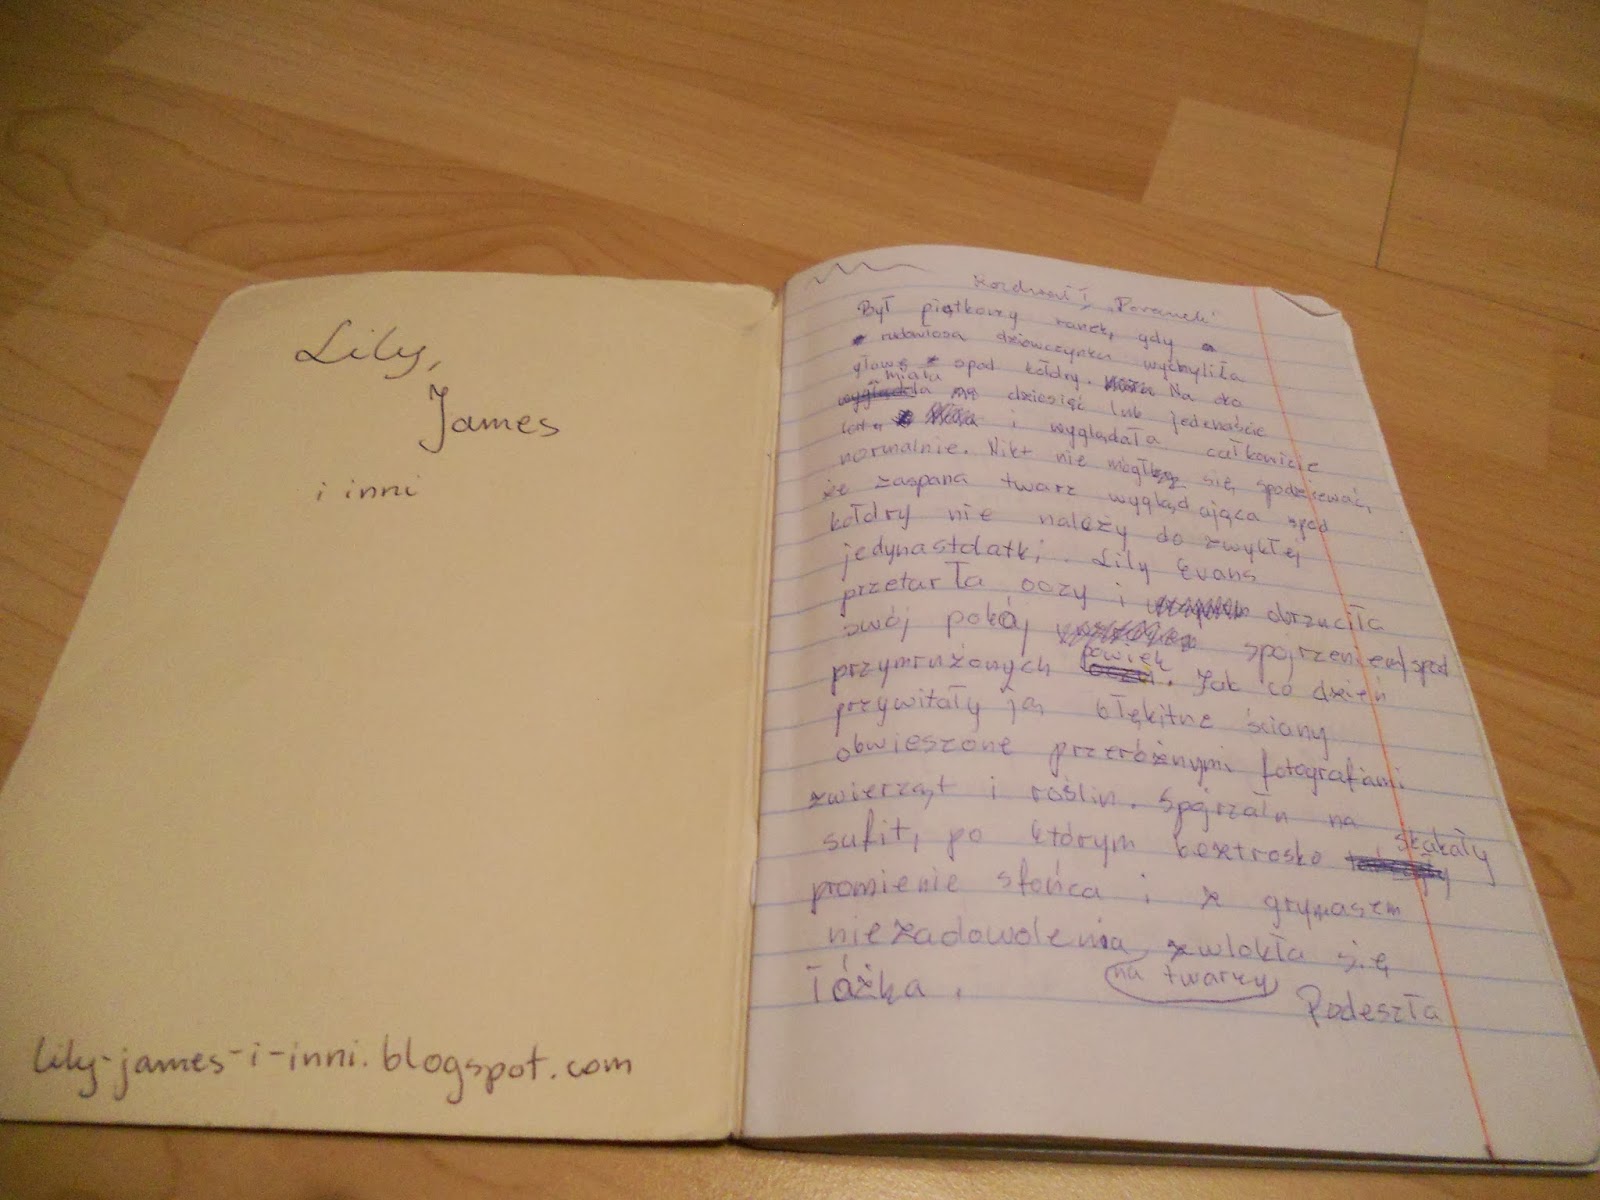 Lily,
James
i inni
lily-james-i-inni.blogspot.com
Rozdział 1 „Poranek"
Był piątkowy ranek, gdy
rudowłosa dziewczynka wychyliła
głowę spod kołdry. Na oko
miała dziesięć lub jedenaście
lat i wyglądała całkowicie
normalnie. Nikt nie mógłby się spodziewać,
że zaspana twarz wyglądająca spod
kołdry nie należy do zwykłej
jedynastolatki. Lily Evans
przetarła oczy i obrzuciła
swój pokój spojrzeniem spod
przymrużonych powiek. Jak co dzień
przywitały ją błękitne ściany
obwieszone przeróżnymi fotografiami
zwierząt i roślin. Spojrzała na
sufit, po którym beztrosko skakały
promienie słońca i z grymasem
niezadowolenia zwlokła się
łóżka. na twarzy Podeszła